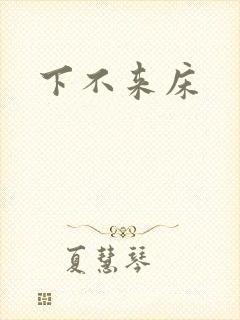 下不来床
夏慧琴